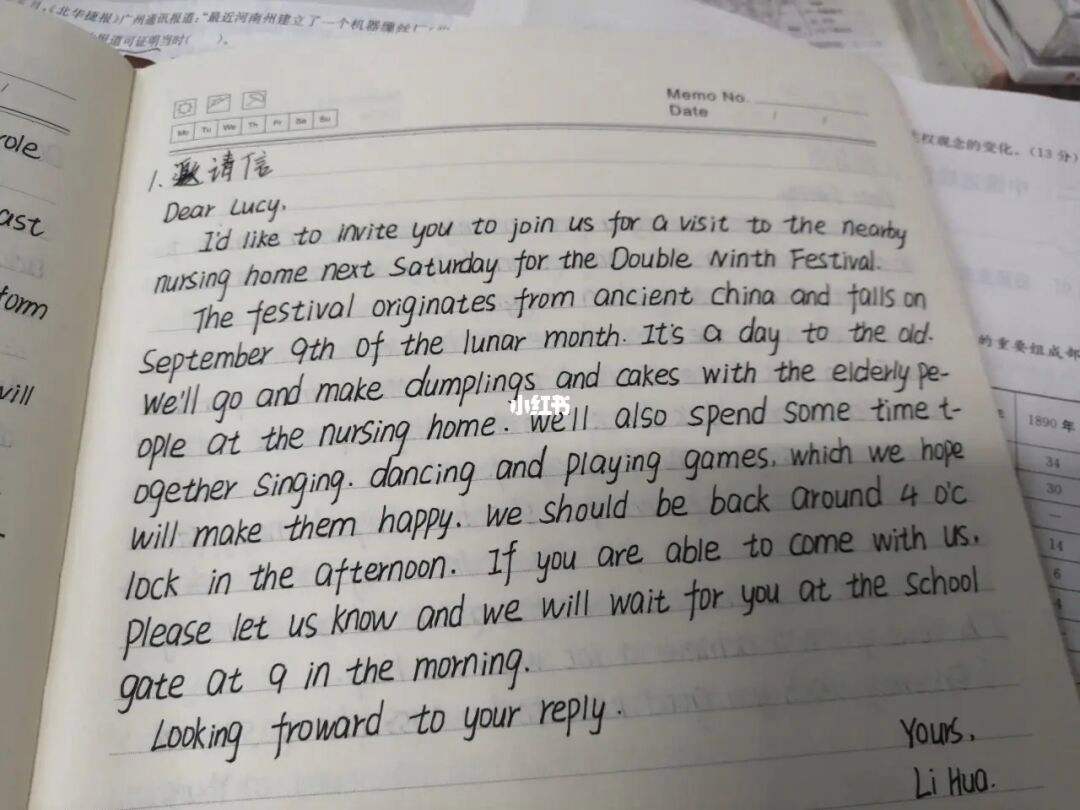 《北华捷报》广州通讯报道:"最近河南州建立了一个机器缫丝厂
报道可证明当时( )。
Memo No.
Date / /
Mo Tu We Th Fr Sa Su
1.邀请信
Dear Lucy,
I'd like to invite you to join us for a visit to the nearby
nursing home next Saturday for the Double Ninth Festival.
The festival originates from ancient china and falls on
September 9th of the lunar month. It's a day to the old.
we'll go and make dumplings and cakes with the elderly pe-
ople at the nursing home. we'll also spend some time t-
ogether singing. dancing and playing games, which we hope
will make them happy. we should be back around 4 o'c
lock in the afternoon. If you are able to come with us,
Please let us know and we will wait for you at the school
gate at 9 in the morning.
Looking froward to your reply.
Yours,
Li Hua.
小红书
role
ast
form
will
权观念的变化。(13 分)
的重要组成部
1890 年
34
30
14
6